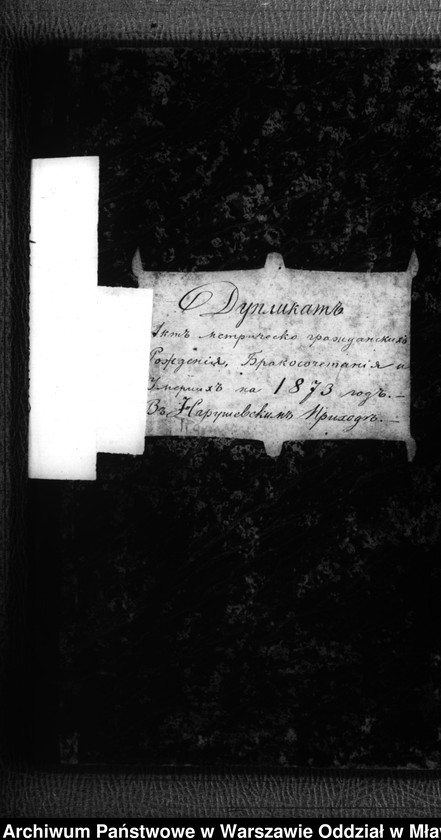 Дупликатъ
Актъ метрическо гражданскихъ
Рожденія, Бракосочетанія и
Умершихъ на 1873 годъ. —
Въ Нарушевскимъ Приходѣ. —
Archiwum Państwowe w Warszawie Oddział w Mła